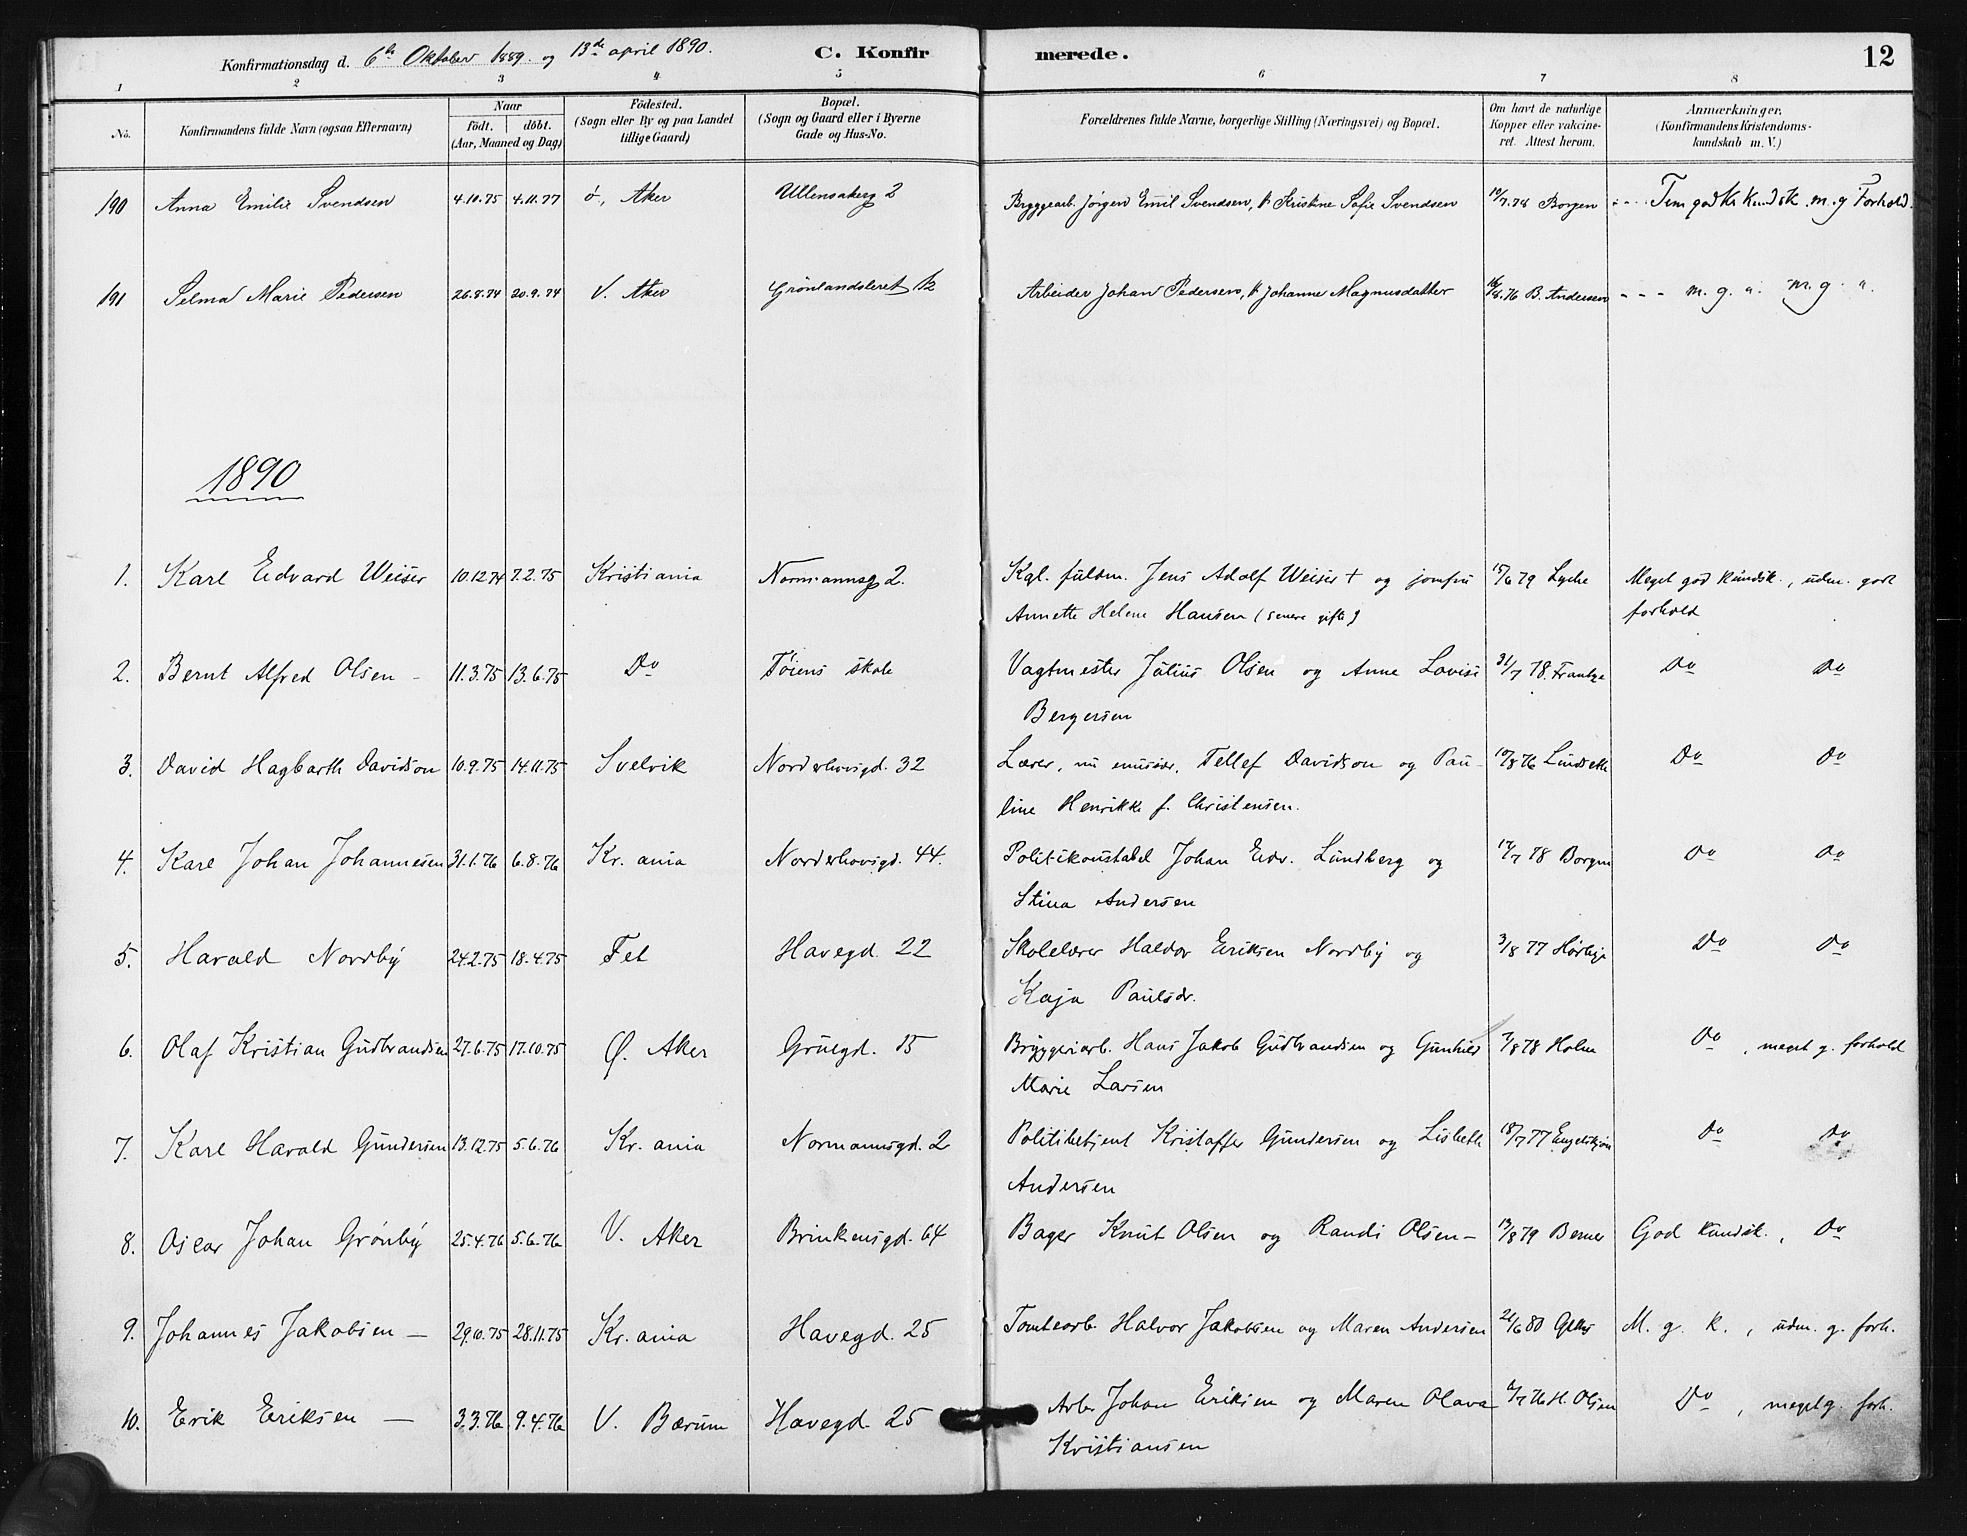 Konfirmationsdag d. 6te Oktober 1889 og 13de april 1890. C. Konfirmerede. 12
1 2 3 4 5 6 7 8
No. Konfirmandens fulde Navn (ogsaa Efternavn) Naar Født. døbt. (Aar, Maaned og Dag) Fødested. (Sogn eller By og paa Landet tillige Gaard) Bopæl. (Sogn og Gaard eller i Byerne Gade og Hus-No. Forældrenes fulde Navne, borgerlige Stilling (Næringsvei) og Bopæl. Om havt de naturlige Kopper eller vakcineret. Attest herom. Anmærkninger. (Konfirmandens Kristendomskundskab m. V.)
190 Anna Emilie Svendsen 4.10.75 4.11.77 ö, Aker Ullensakerg 2 Bryggearb. Jörgen Emil Svendsen, Kristine Sofie Svendsen 7.78 Borgen Kundsk. m. g Forhold.
191 Selma Marie Pedersen 26.8.74 20.9.74 V. Aker Grönlandsleret Arbeider Johan Pedersen, Johanne Magnusdatter 76 B. Andersen - - - m. g. m. g.
1890
1. Karl Edvard Weiser 10.12.74 7.2.75 Kristiania Normannsg 2. Kgl. fuldm. Jens Adolf Weiser + og jomfru 79 Lyche Meget god kundsk., udm. godt
Annette Helene Hansen (senere gifte) forhold
2. Bernt Alfred Olsen - 11.3.75 13.6.75 Do Töiens skole Vagtmester Julius Olsen og Anne Lovise 31/7 78. Do Do
Bergersen
3. David Hagbarth Davidson 10.9.75 14.11.75 Svelvik Norderhovsgd. 32 Lærer, nu Tellef Davidson og Pau- 8 76 Lindseth Do Do
line Henrikke f. Christensen.
4. Karl Johan Johannesen 31.1.76 6.8.76 Kr.ania Norderhovsgd. 44. Politikonstabel Johan Edv. Lundberg og 17/7 78 Borgen Do Do
Stina Andersen
5. Harald Nordby 24.2.75 18.4.75 Fet Havegd. 22 Skolelærer Haldor Eriksen Nordby og 3/8 77 Hörbye Do Do
Kaja Paulsdr.
6. Olaf Kristian Gudbrandsen 27.6.75 17.10.75 Ø. Aker Gruegd. 15 Bryggeriarb. Hans Jakob Gudbrandsen og Gunhild 7/8 78 Holm Do, meget g. forhold
Marie Larsen
7. Karl Harald Gundersen 13.12.75 5.6.76 Kr.ania Normannsgd. 2 Politibetjent Kristoffer Gundersen og Lisbeth 18/7 77 Do Do
Andersen
8. Oscar Johan Grönby 25.4.76 5.6.76 V. Aker Brinkensgd. 64 Bager Knut Olsen og Randi Olsen - 13/8 79 Berner God kundsk., Do
9. Johannes Jakobsen - 29.10.75 28.11.75 Kr.ania Havegd. 25 Tomtearb. Halvor Jakobsen og Maren Andersen 6 80 M. g. k., udm. g. forh.
10. Erik Eriksen - 3.3.76 9.4.76 V. Bærum Havegd. 25 Arb. Johan Eriksen og Maren Olava 7 76 H. Olsen Do, meget g. forh.
Kristiansen